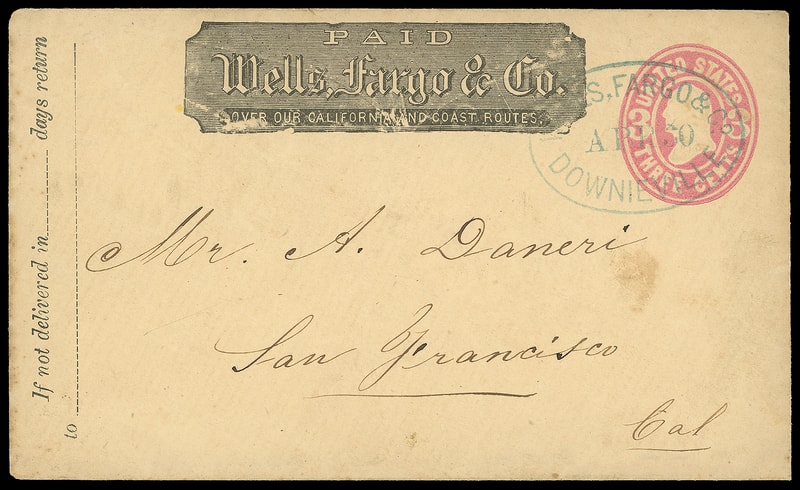 PAID
Wells, Fargo & Co.
OVER OUR CALIFORNIA AND COAST ROUTES.
UNITED STATES
THREE CENTS
S, FARGO & Co
APR 30
DOWNIEVILLE
If not delivered in days return
to
Mr. A. Daneri
San Francisco
Cal